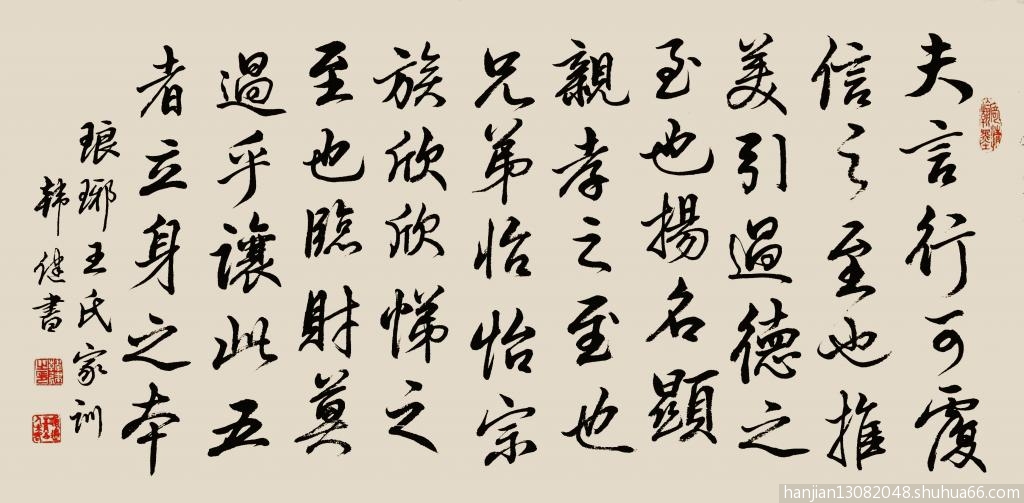 夫言行可覆
信之至也推
美引過德之
至也揚名顯
親孝之至也
兄弟怡怡宗
族欣欣悌之
至也臨財莫
過乎讓此五
者立身之本
琅琊王氏家訓
韩健書
hanjian13082048.shuhua66.com